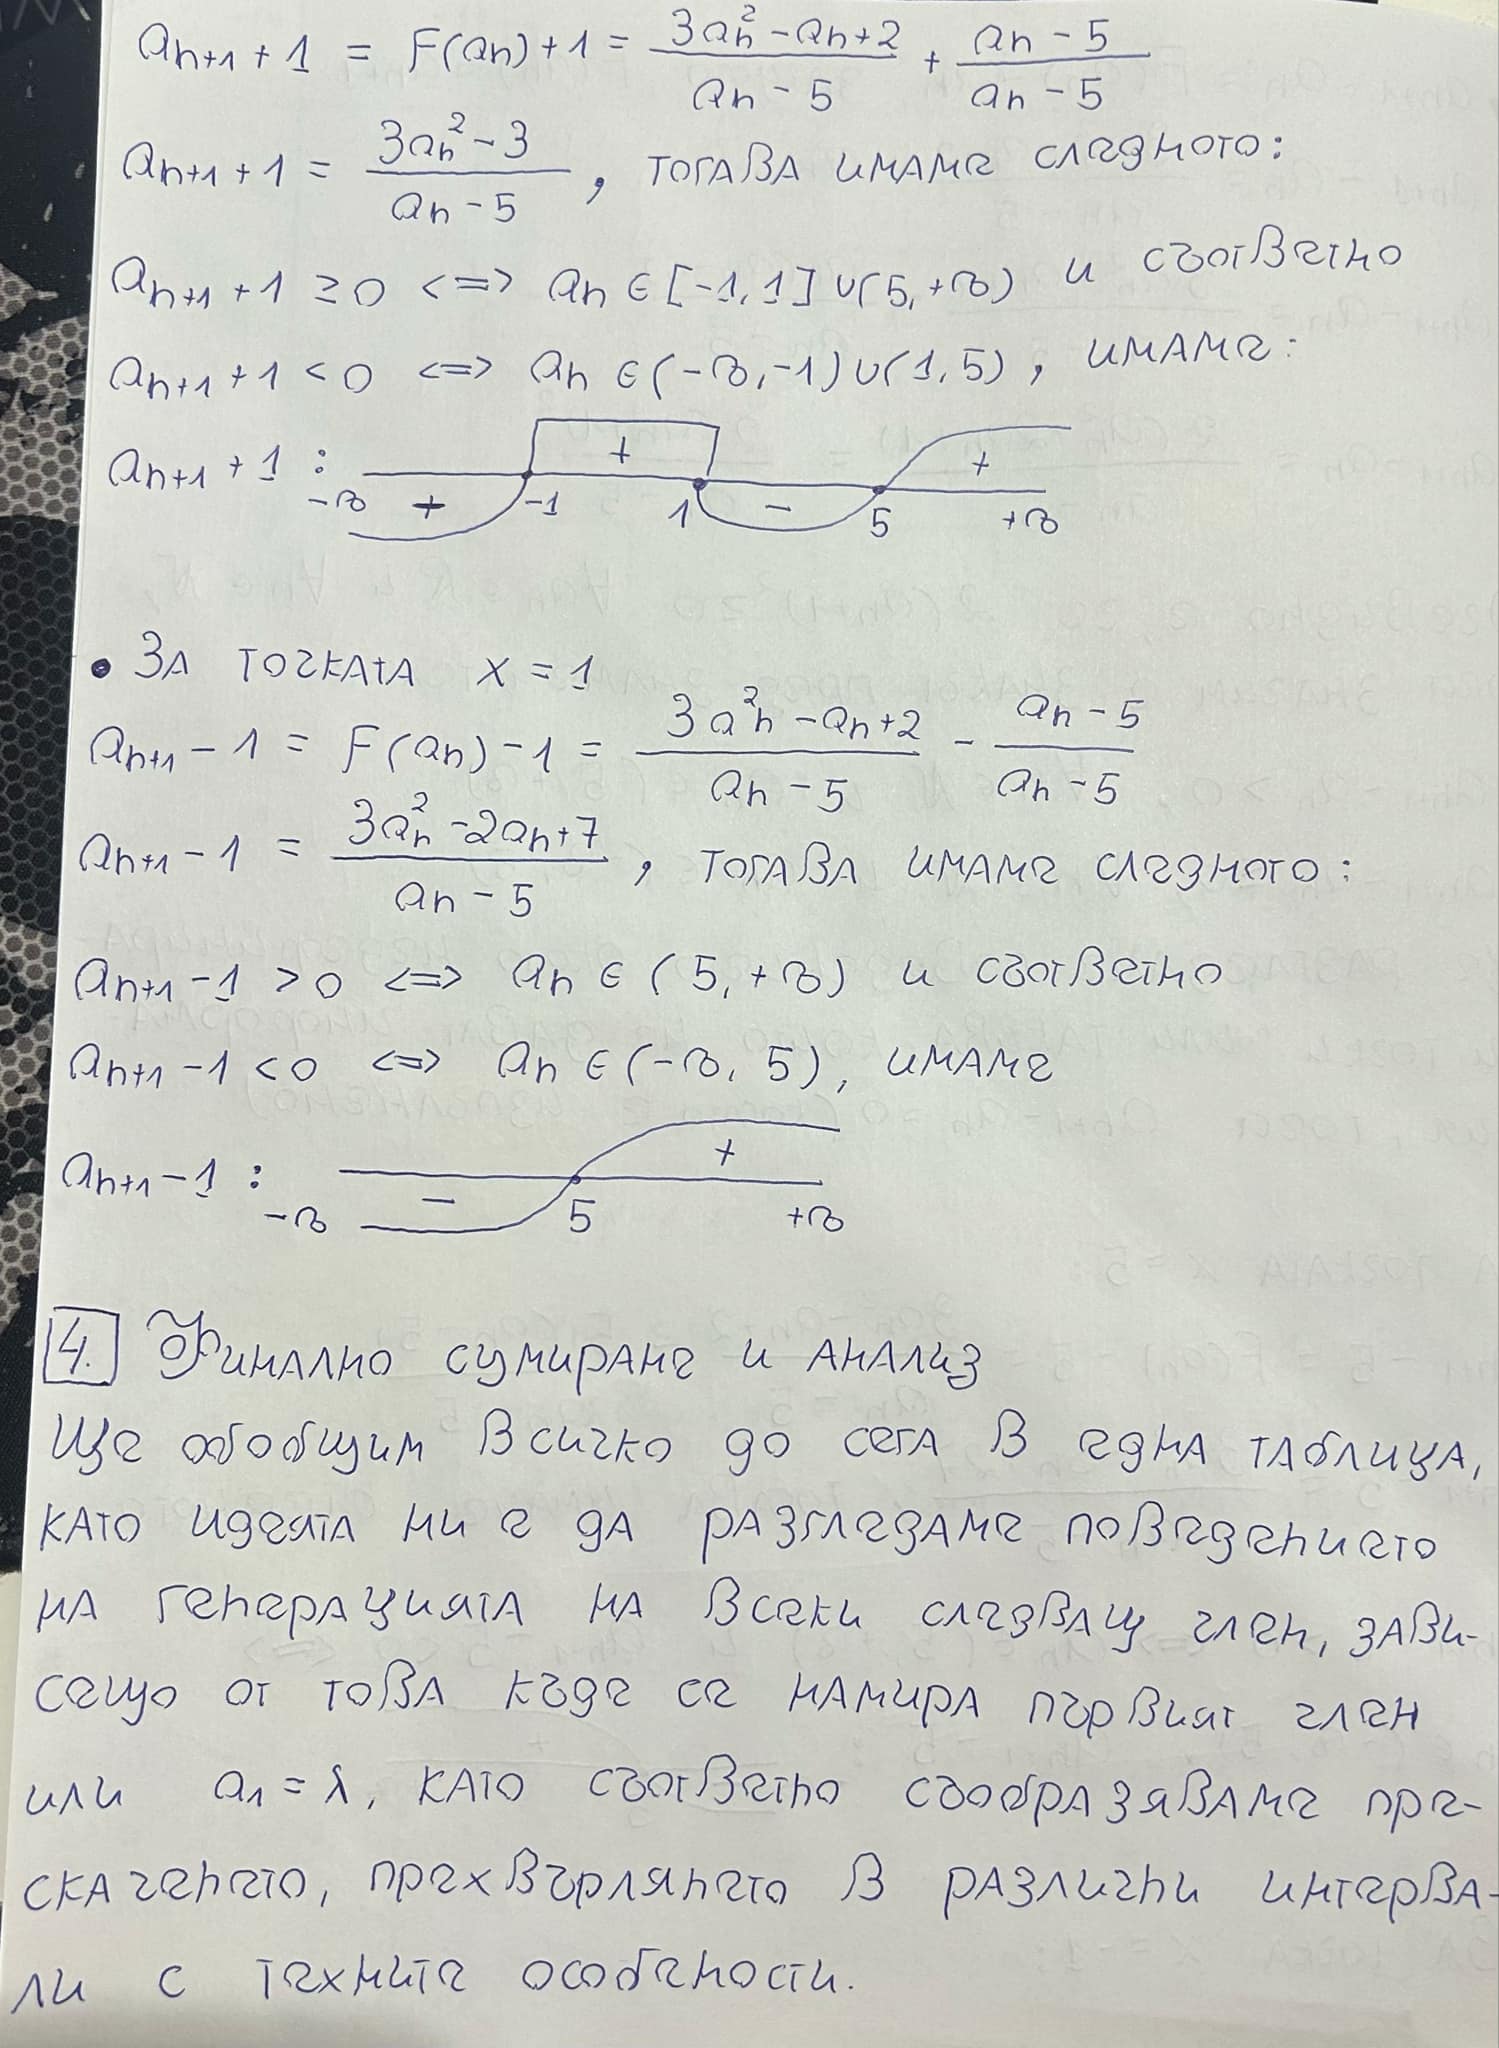 aₙ₊₁ + 1 = F(aₙ) + 1 = (3aₙ² - aₙ + 2)/(aₙ - 5) + (aₙ - 5)/(aₙ - 5)
aₙ₊₁ + 1 = (3aₙ² - 3)/(aₙ - 5), тогава имаме следното:
aₙ₊₁ + 1 ≥ 0 <=> aₙ ∈ [-1, 1] ∪ (5, +∞) и съответно
aₙ₊₁ + 1 < 0 <=> aₙ ∈ (-∞, -1) ∪ (1, 5), имаме:
aₙ₊₁ + 1 : + - +
-∞ + -1 1 5 +∞
• За точката x = 1
aₙ₊₁ - 1 = F(aₙ) - 1 = (3a²ₙ - aₙ + 2)/(aₙ - 5) - (aₙ - 5)/(aₙ - 5)
aₙ₊₁ - 1 = (3aₙ² - 2aₙ + 7)/(aₙ - 5), тогава имаме следното:
aₙ₊₁ - 1 > 0 <=> aₙ ∈ (5, +∞) и съответно
aₙ₊₁ - 1 < 0 <=> aₙ ∈ (-∞, 5), имаме
aₙ₊₁ - 1 : - +
-∞ 5 +∞
4. Финално сумиране и анализ
Ще обобщим всичко до сега в една таблица,
като идеята ни е да разгледаме поведението
на генерацията на всеки следващ член, зави-
сещо от това къде се намира първият член
или a₁ = λ, като съответно съобразяваме пре-
скачането, прехвърлянето в различни интерва-
ли с техните особености.